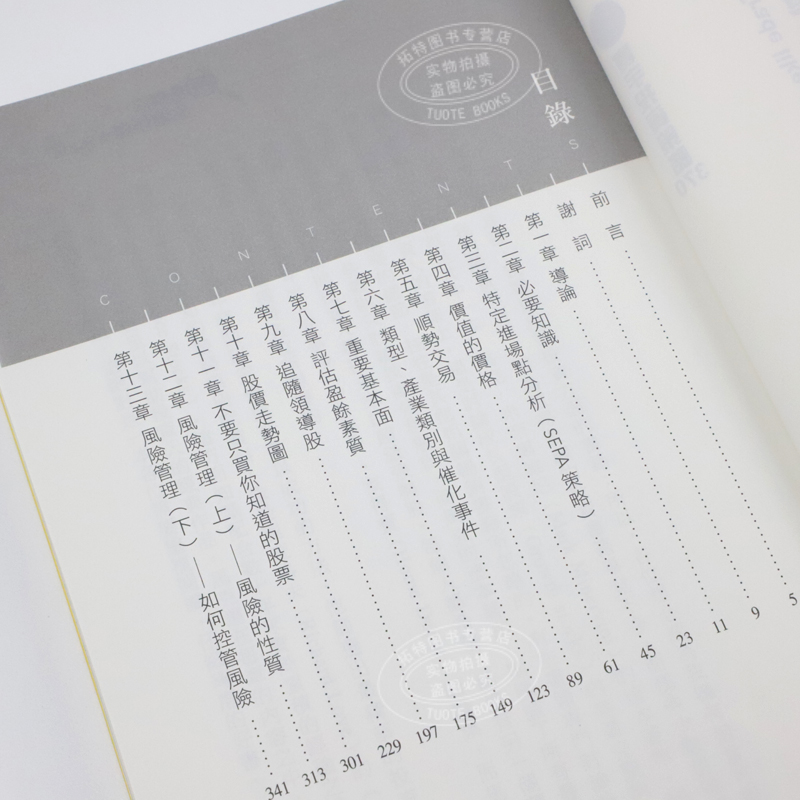 目錄
CONTENTS
前言 5
謝詞 9
第一章 導論 11
第二章 必要知識 23
第三章 特定進場點分析（SEPA 策略） 45
第四章 價值的價格 61
第五章 順勢交易 89
第六章 類型、產業類別與催化事件 123
第七章 重要基本面 149
第八章 評估盈餘素質 175
第九章 追隨領導股 197
第十章 股價走勢圖 229
第十一章 不要只買你知道的股票 301
第十二章 風險管理（上）——風險的性質 313
第十三章 風險管理（下）——如何控管風險 341
拓特图书专营店
实物拍摄
盗图必究
TUOTE BOOKS
拓特图书专营店
实物拍摄
盗图必究
TUOTE BOOKS